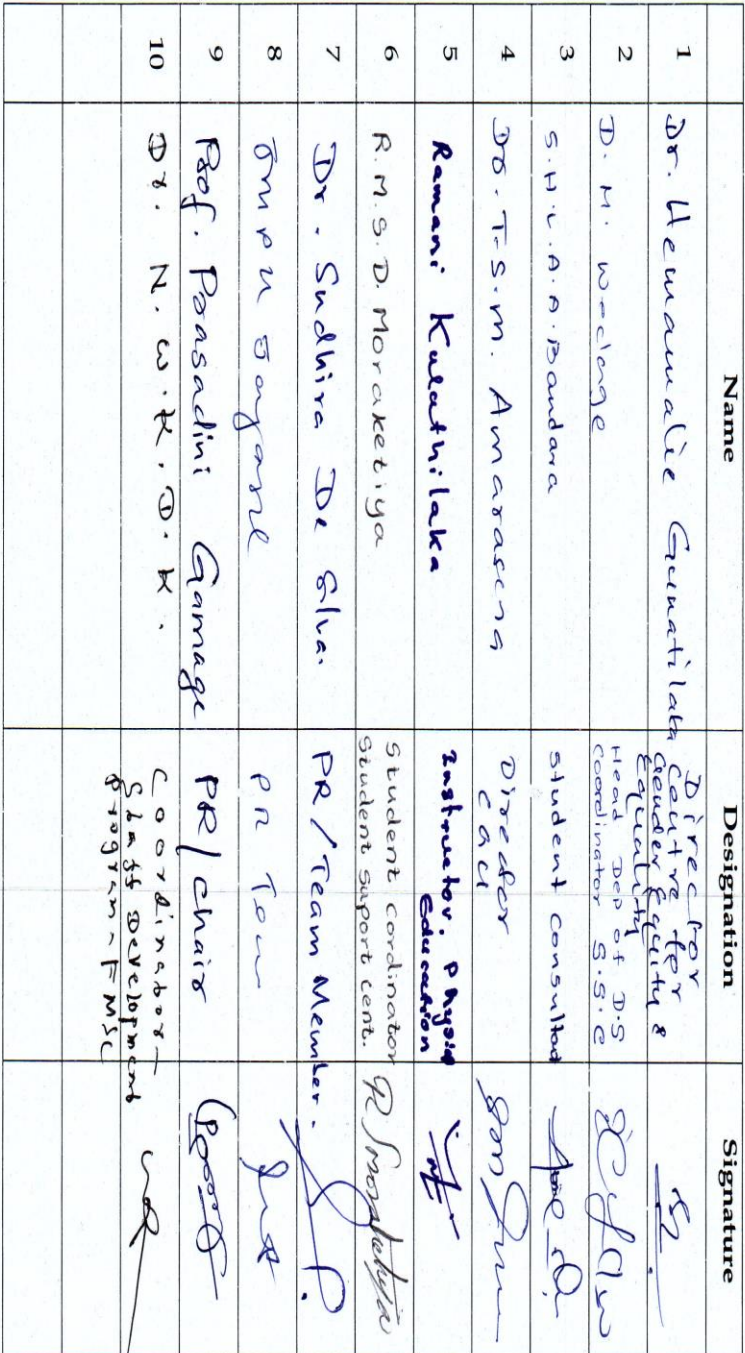 Name Designation Signature
1 Dr. Hemamalie Gunatilaka Director
Centre for
Gender Equity &
Equality
2 D. M. Wedage Head Dep of D.S
Coordinator S.S.C
3 S.H.L.A.A. Bandara Student Consultant
4 Dr. T.S.M. Amarasena Director
CAU
5 Ramani Kulathilaka Instructor. Physic
Education
6 R.M.S.D. Moraketiya Student cordinator
Student suport cent.
7 Dr. Sudhira De Silva. PR/Team Member.
8 PR
9 Prof. Prasadini Gamage PR/Chair
10 Dr. N.W.K.D.K. Coordinator -
Staff Development
Program - FMSC